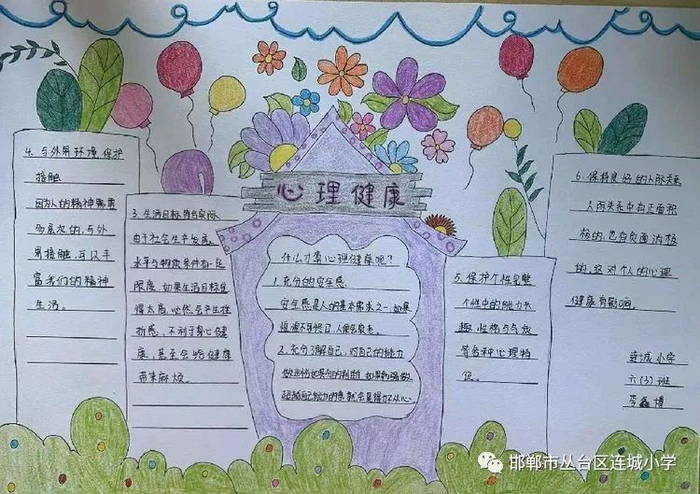 心理健康
什么才算心理健康呢?
1.充分的安全感
安全感是人的基本需求之一,如果
惶惶不可终日,人便会衰老。
2.充分了解自己,对自己的能力
3.生活目标切合实际
由于社会生产发展
水平与物质条件有一定
限度,如果生活目标定
得太高,必然会产生挫
折感,不利于身心健
康,甚至会给健康
带来麻烦。
4.与外界环境保护
接触
因为人的精神需要
多层次的,与外
界接触,可以丰
富者们的精神
生活。
5.保护个性完整
个性中的能力兴
趣,性格与气质
等各种心理特
6.保持良好的人际关系
人际关系中有正面积
极的,也有负面消极
的,这对个人的心理
健康有影响。
连城小学
六(3)班
李 博
邯郸市丛台区连城小学